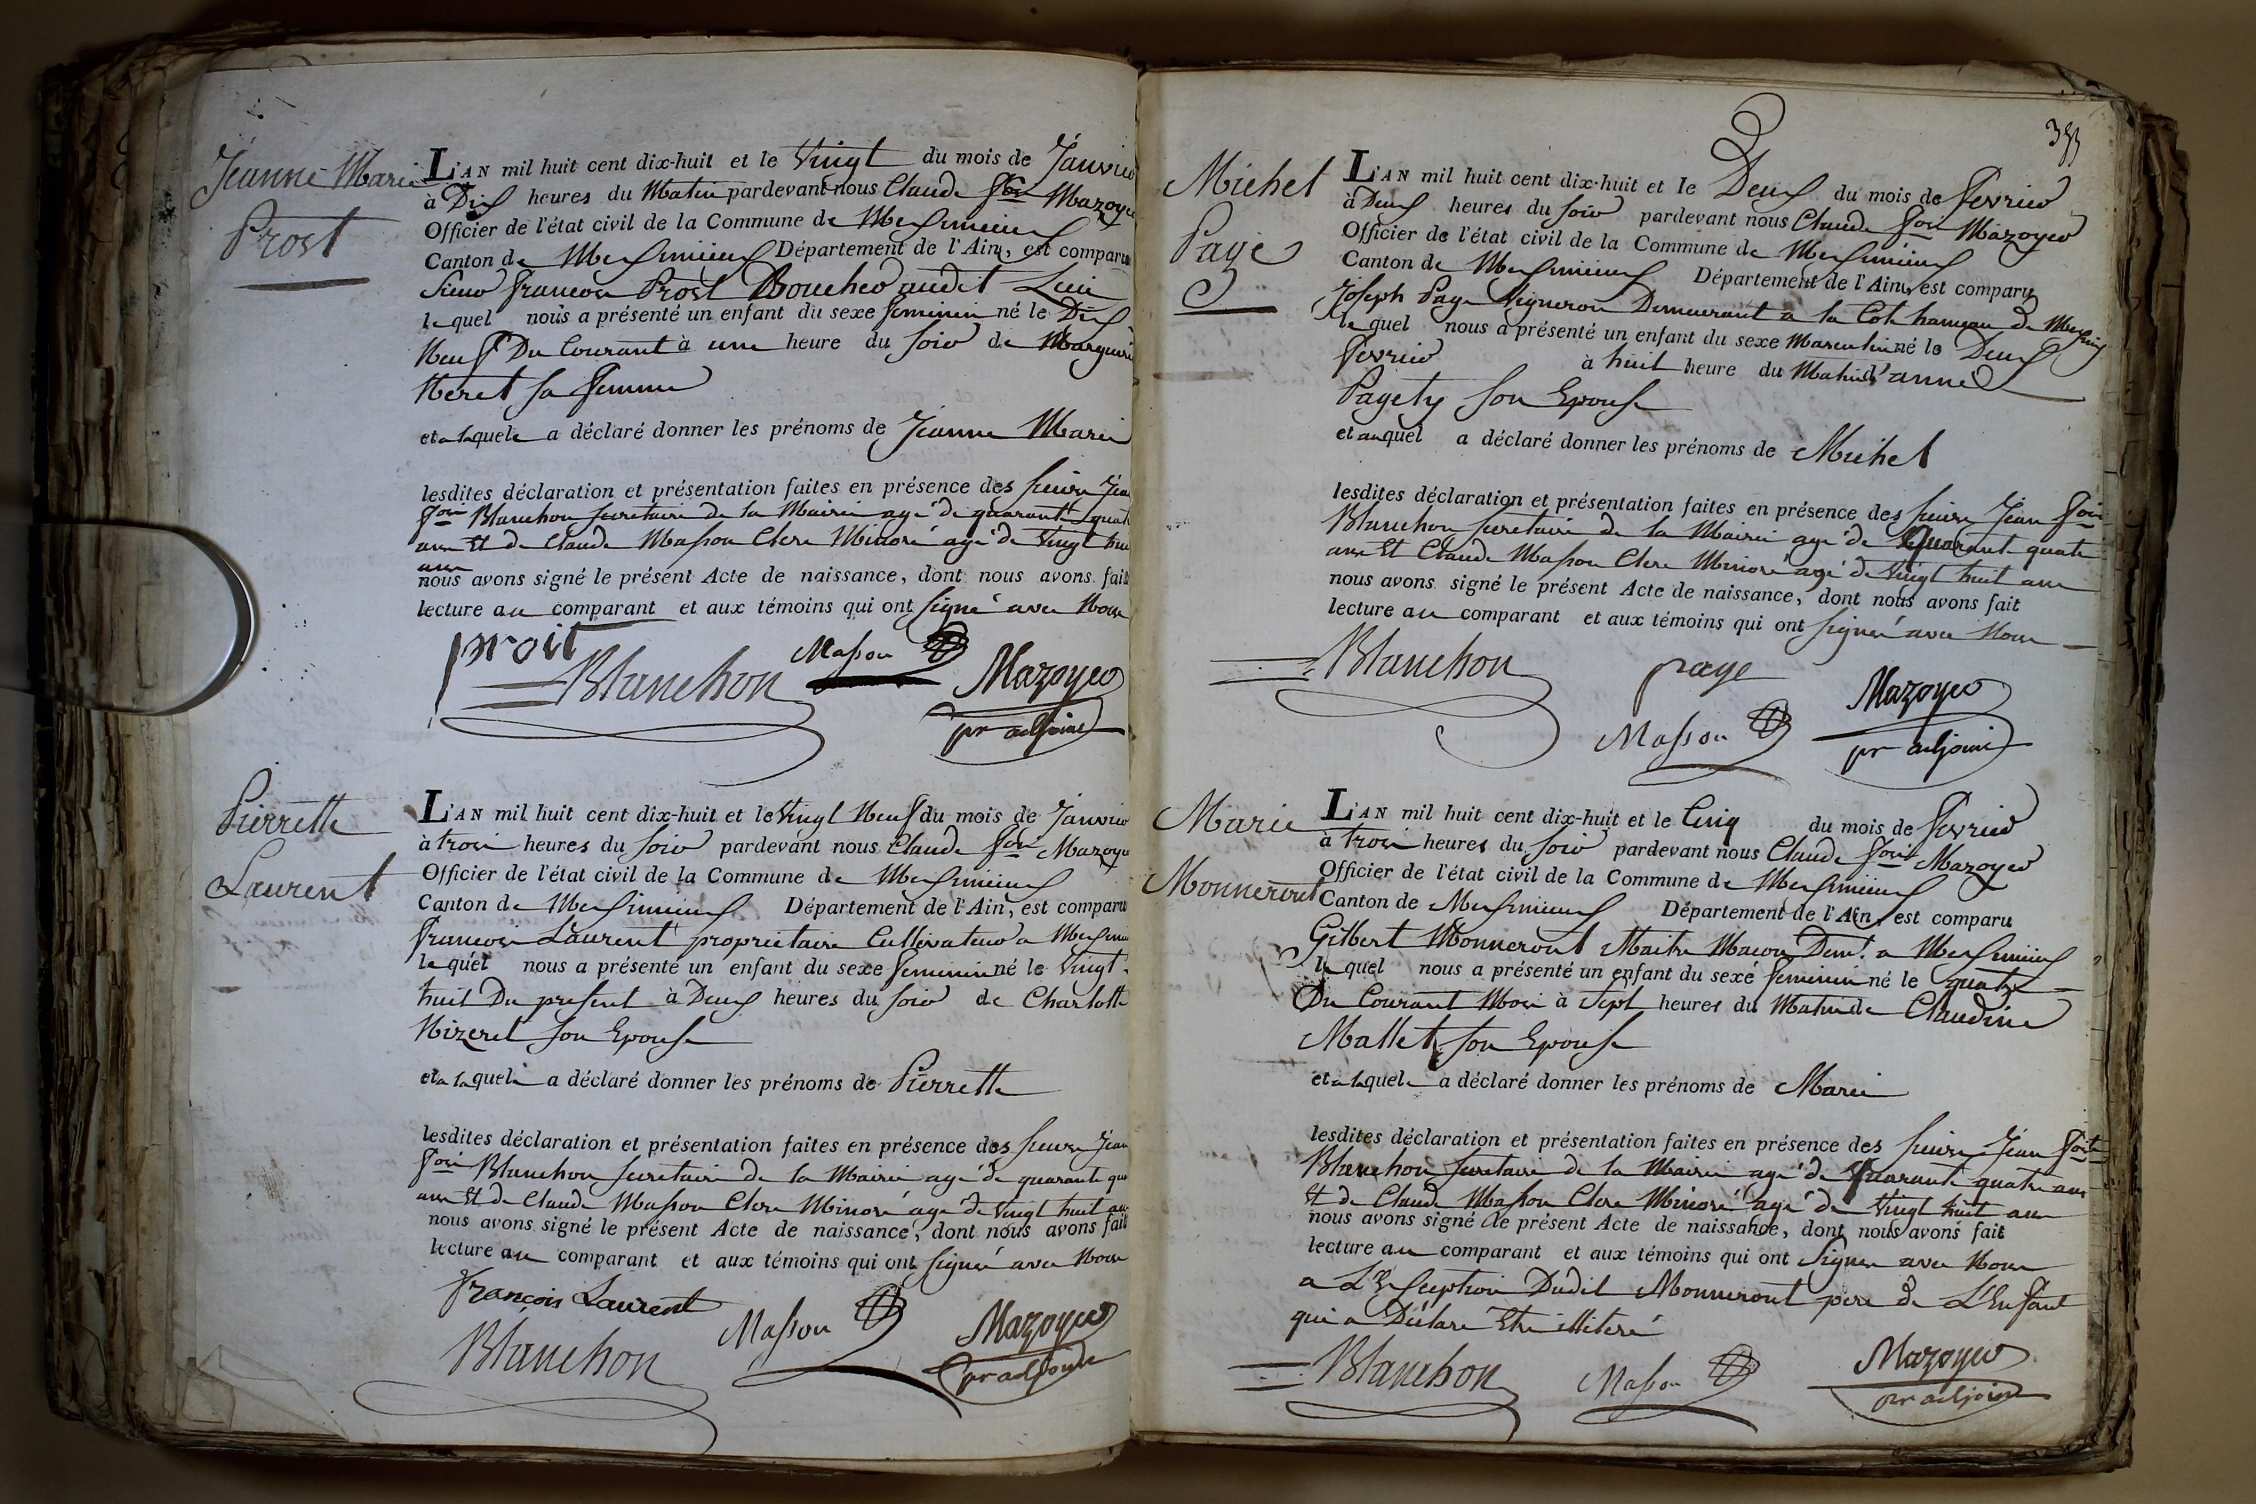 Jeanne Marie
Prost
L'AN mil huit cent dix-huit et le Vingt du mois de Janvier
à Dix heures du Matin pardevant nous Claude fois Mazoyer
Officier de l'état civil de la Commune de Meximieux
Canton de Meximieux Département de l'Ain, est comparu
Sieur francois Prost Boucher audit Lieu
lequel nous a présenté un enfant du sexe feminin né le Dix
Neuf Du Courant à une heure du soir de Marguerite
Neret sa femme
et a laquele a déclaré donner les prénoms de Jeanne Marie
lesdites déclaration et présentation faites en présence des sieurs Jean
fois Blanchon secretaire de la Mairie agé de quarante quatre
ans Et de Claude Masson Clerc Minoré agé de Vingt huit
ans
nous avons signé le présent Acte de naissance, dont nous avons fait
lecture au comparant et aux témoins qui ont signé avec Nous
proit
Blanchon Masson Mazoyer
pr adjoint
Pierrette
Laurent
L'AN mil huit cent dix-huit et le Vingt Neuf du mois de Janvier
à trois heures du soir pardevant nous Claude fois Mazoyer
Officier de l'état civil de la Commune de Meximieux
Canton de Meximieux Département de l'Ain, est comparu
francois Laurent propriétaire Cultivateur a Meximieux
lequel nous a présenté un enfant du sexe feminin né le Vingt
huit Du present à Deux heures du soir de Charlotte
Nizeret son Epouse
et a laquele a déclaré donner les prénoms de Pierrette
lesdites déclaration et présentation faites en présence des sieurs Jean
fois Blanchon secretaire de la Mairie agé de quarante quatre
ans Et de Claude Masson Clerc Minoré agé de Vingt huit ans
nous avons signé le présent Acte de naissance, dont nous avons fait
lecture au comparant et aux témoins qui ont signé avec Nous
françois Laurent
Blanchon Masson Mazoyer
pr adjoint
Michel
Page
L'AN mil huit cent dix-huit et le Deux du mois de fevrier
à Deux heures du soir pardevant nous Claude fois Mazoyer
Officier de l'état civil de la Commune de Meximieux
Canton de Meximieux Département de l'Ain, est comparu
Joseph Page Vigneron Demeurant a la Cote hameau de Meximieux
lequel nous a présenté un enfant du sexe Masculin né le Deux
fevrier à huit heure du Matin d'anne
Pagety son Epouse
et auquel a déclaré donner les prénoms de Michel
lesdites déclaration et présentation faites en présence des sieurs Jean fois
Blanchon secretaire de la Mairie agé de Quarante quatre
ans Et Claude Masson Clerc Minoré agé de Vingt huit ans
nous avons signé le présent Acte de naissance, dont nous avons fait
lecture au comparant et aux témoins qui ont signé avec Nous
Blanchon page Mazoyer
Masson pr adjoint
Marie
Monneront
L'AN mil huit cent dix-huit et le Cinq du mois de fevrier
à trois heures du soir pardevant nous Claude fois Mazoyer
Officier de l'état civil de la Commune de Meximieux
Canton de Meximieux Département de l'Ain, est comparu
Gilbert Monneront Maitre Macon Demt. a Meximieux
lequel nous a présenté un enfant du sexe feminin né le quatre
Du Courant Mois à Sept heures du Matin de Claudine
Mallet son Epouse
et a laquele a déclaré donner les prénoms de Marie
lesdites déclaration et présentation faites en présence des sieurs Jean fois
Blanchon secretaire de la Mairie agé de Quarante quatre ans
Et de Claude Masson Clerc Minoré agé de Vingt huit ans
nous avons signé le présent Acte de naissance, dont nous avons fait
lecture au comparant et aux témoins qui ont Signer avec Nous
a L'Exception Dudit Monneront pere de L'Enfant
qui a Déclaré Etre illiteré
Blanchon Masson Mazoyer
pr adjoint